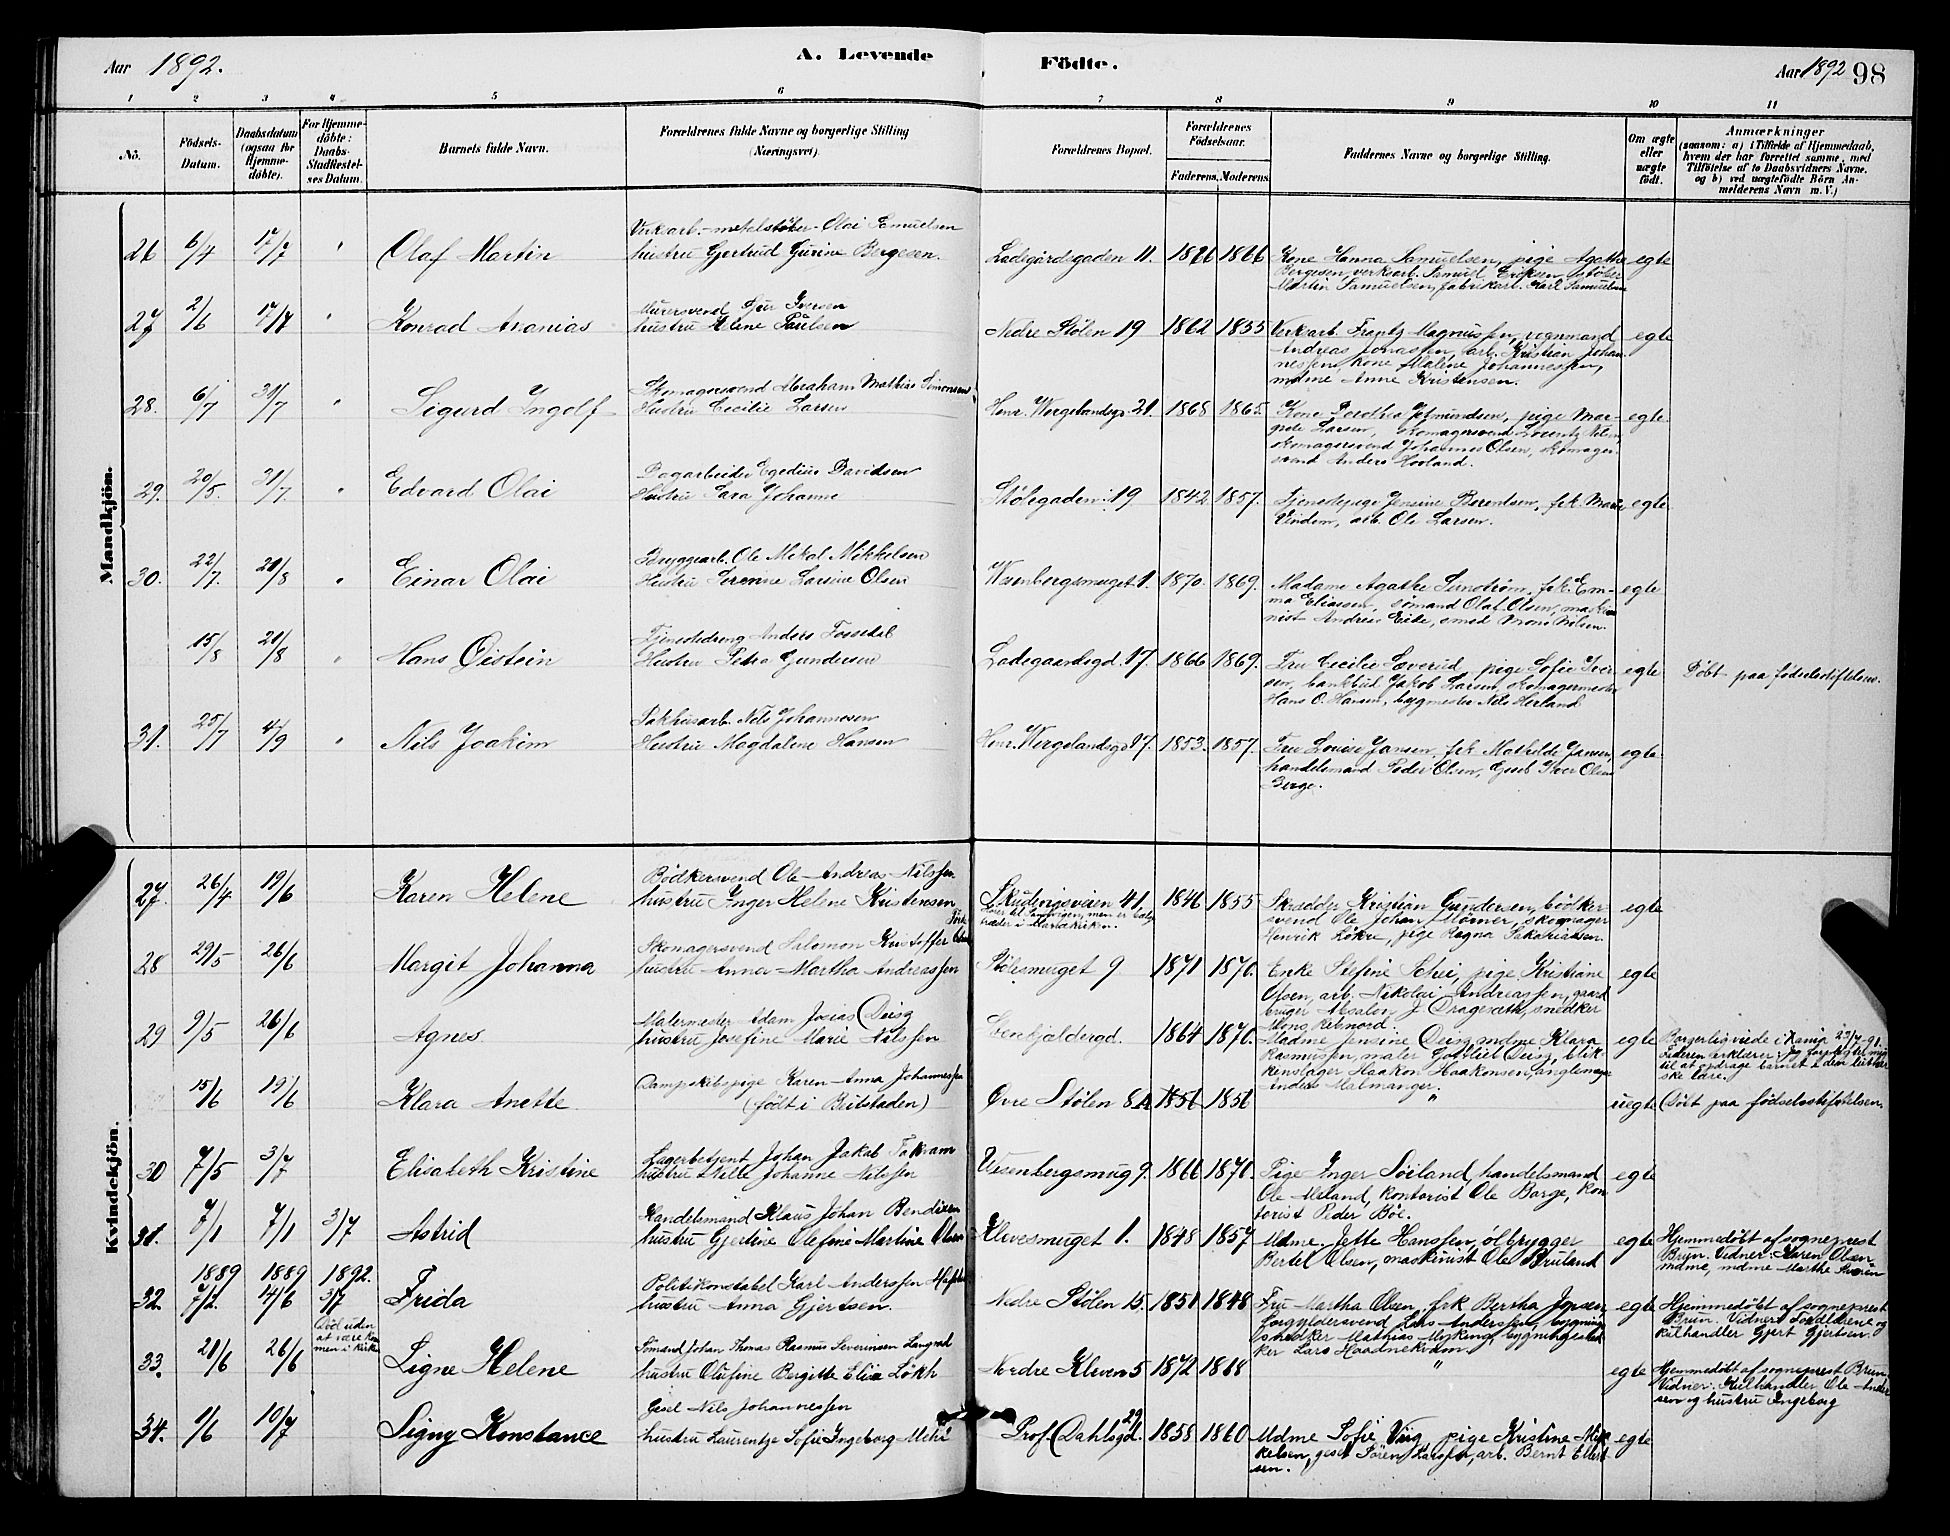 Aar 1892.
A. Levende Födte.
Aar 1892 98
1 2 3 4 5 6 7 8 9 10 11
No.
Födsels-Datum.
Daabsdatum (ogsaa for Hjemmedöbte).
For Hjemmedöbte: Daabs-Stadfæstelses Datum.
Barnets fulde Navn.
Forældrenes fulde Navne og borgerlige Stilling (Næringsvei).
Forældrenes Bopæl.
Forældrenes Födselsaar.
Faderens. Moderens.
Faddernes Navne og borgerlige Stilling.
Om ægte eller uægte födt.
Anmærkninger
(saasom: a) i Tilfælde af Hjemmedaab, hvem der har forrettet samme, med Tilföielse af to Daabsvidners Navne. og b) ved uægtefödte Börn Anmelderens Navn m. V.)
Mandkjön.
26 6/4 17/7 Olaf Martin
Verksarb.-metalstöber Olai Samuelsen
hustru Gjertrud Gurine Bergesen.
Ladegårdsgaden 11. 1866
Kone Hanna Samuelsen, pige Agathe
Bergesen, verksarb. Samuel Eriksen, støber
Martin Samuelsen, fabrikarb. Karl Samuelsen
egte
27 2/6 17/7 Konrad Ananias
Murersvend Sjur Iversen
hustru Alene Paulsen
Nedre Stølen 19 1862 1855
Verksarb. Frantz Magnussen, vognmand
Andreas Jonassen, arb. Kristian Johannessen, kone Malene Johannessen,
mdme Anne Kristensen.
egte
28. 6/7 31/7 Sigurd Ingolf
Skomagersvend Abraham Mathias Simonsen
Hustru Cecilie Larsen
Henr. Wergelandsgd. 21. 1868 1865.
Kone Dorothea Jetmundsen, pige Margrete Larsen, skomagersvend Lorentz
skomagersvend Johannes Olsen, skomagersvend Anders Hooland.
egte
29. 20/5. 31/7. Edvard Olai
Dagarbeider Egedius Davidsen
Hustru Sara Johanne
Stølegaden 19 1842 1857.
Tjenestepige Jensine Berentsen, frk. Marie
Vindem, arb. Ole Larsen.
egte
30. 22/7. 21/8 Einar Olai
Bryggearb. Ole Mikal Mikkelsen
Hustru Serenne Larsine Olsen
Wesenbergsmuget 1. 1870. 1869.
Madame Agathe Sundtrøm, frk. Emma Eliassen, sømand Olaf Olsen, maskinist Andreas Eide, smed Mons Nilsen.
egte
15/8 21/8 Hans Øistein
Tjenestedreng Anders Fossedal
Hustru Petra Gundersen
Ladegaardsgd. 17. 1866 1869.
Fru Cecilie Sæverud, pige Sofie Iversen, bankbud Jakob Larsen, skomagermester
Hans O. Hansen, bygmester Nils Herland
egte
Døbt paa fødselsstiftelsen.
31. 25/7 4/9 Nils Joakim
Pakhusarb. Nils Johannesen
Hustru Magdalene Hansen
Henr. Wergelandsgd. 17. 1853. 1857.
Fru Louise Jansen, frk Mathilde Jansen,
handelsmand Peder Olsen, Gjesel Iver Olsen
Berge.
egte.
Kvindekjön.
27. 26/4 19/6 Karen Helene
Bødkersvend Ole Andreas Nilssen
hustru Inger Helene Kristensen
Skudevigsveien 41.
1846 1855
Skrædder Kristian Gundersen, bødkersvend Ole Johan Mörner, skomager
Henrik Løkre, pige Ragna Sakariassen.
egte
28 29/5 26/6 Margit Johanna
Skomagersvend Salomon Kristoffer
hustru Anna Martha Andreassen
Stølesmuget 9 1871 1870.
Enke Stefine Schei, pige Kristiane
Olsen, arb. Nikolai Andreassen, gaardbruger Absalon J. Dragesæth, snedker
Mons Rebnord.
egte
29 9/5 26/6 Agnes
Malermester Adam Josias Deisz
hustru Josefine Marie Nilssen
1864 1870.
Madme Jensine Deisz, mdme Klara
Rasmussen, maler Gottlieb Deisz, blikkenslager Haakon Haakonsen,
Anders Malmanger.
egte
Borgerlig viede i Kamp. 23/7-91.
Faderen erklærer: Jeg forpligter mig
til at opdrage barnet i den lutherske lære.
15/6 19/6 Klara Anette
Dampskibspige Karen Anna Johannessen
(født i Beitstaden)
Øvre Stølen 8A 1856 1856
"
uegte
Døbt paa fødselsstiftelsen.
30 7/5 3/7 Elisabeth Kristine
Lagerbetjent Johan Jakob Takvam
hustru Mille Johanne Nilssen
Wesenbergsmug 9. 1866 1870.
Pige Inger Søiland, handelsmand
Ole Meland, kontorist Ole Barge, kontorist Peder Böe.
egte
31. 7/1 7/1 3/7 Astrid
Handelsmand Klaus Johan Bendixen
hustru Gjertine Olefine Martine Olsen
Klevesmuget 1. 1848 1857
Mdme. Jette Hanssen, ølbrygger
Bertel Olsen, maskinist Ole Bruland
egte
Hjemmedøbt af sogneprest
Brun. Vidner: Karen Olsen
mdme, mdme Marthe
32. 1889 7/2. 1889 4/6 1892. 3/7 Frida
Politikonstabel Karl Anderssen
hustru Anna Gjertsen.
Nedre Stølen 15. 1851 1848
Fru Martha Olsen, frk Bertha Jonsen
forgyldersvend Lars Anderssen, bygningssnedker Mathias Myking, bygningssnedker Lars Haadnekvam.
egte
Hjemmedøbt af sogneprest
Brun. Vidner: Forældrene og
kulhandler Gjert Gjertsen.
33. 21/6 26/6 Død uden at være kommen i kirken
Signe Helene
Sømand Johan Thomas Rasmus Severinsen
hustru Olufine Bergitte Elisa Løkh
Nordre Kleven 5 1872 1868
"
egte
Hjemmedøbt af sogneprest Brun,
Vidner: Kulhandler Ole Andersen og hustru Ingeborg
34. 1/6 10/7 Signy Konstance
Gesel Nils Johannessen
hustru Laurentze Sofie Ingeborg
Prof. Dahlsgd. 29 1858 1860
Mdme Sofie Viig, pige Kristine Mikkelsen, gesel Sören Larssen, arb. Bernt Ellertsen.
egte